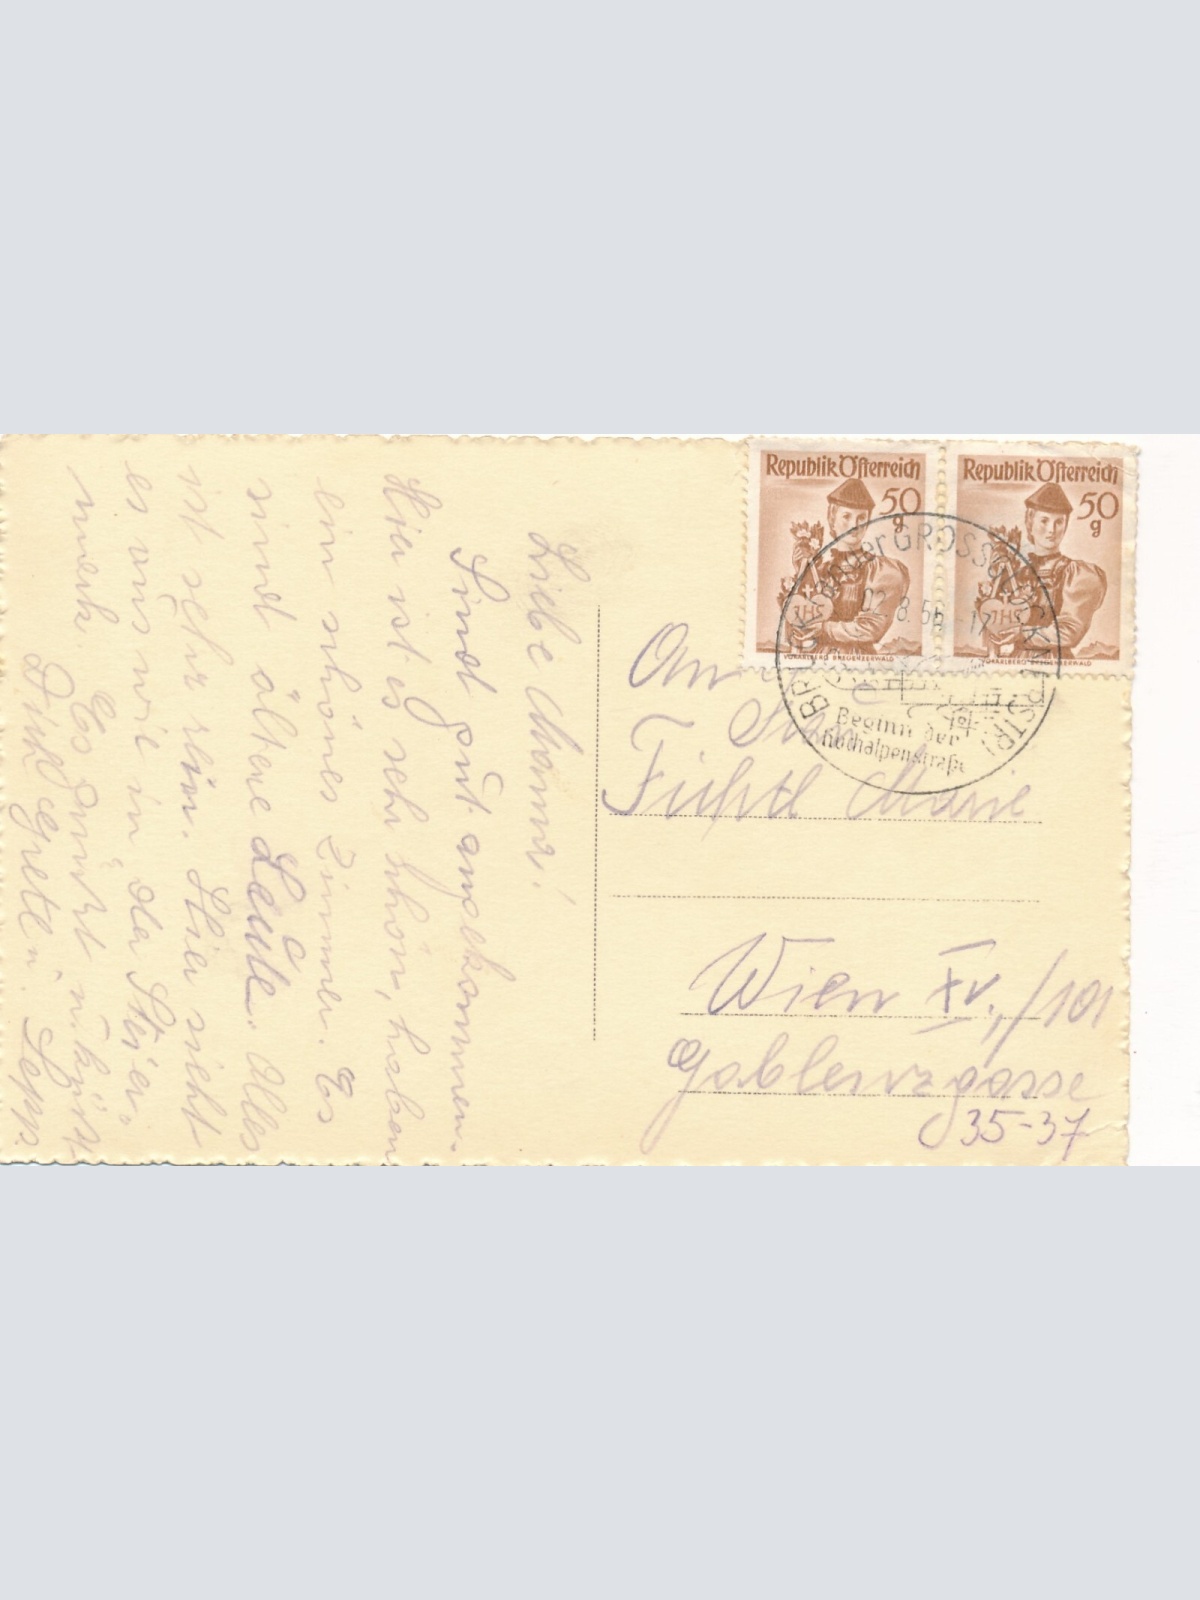 Liebe Mama!
Sind gut angekommen.
Hier ist es sehr schön, haben
ein schönes Zimmer. Es
sind ältere Leute. Alles
ist sehr rein. Hier sieht
es aus wie in der
Es grüßt u. küßt
Dich Gretl u. Sepp.
Republik Österreich
50
g
VORARLBERG BREGENZERWALD
Republik Österreich
50
g
VORARLBERG BREGENZERWALD
GROSSGLOCKNERSTR
8.56
Beginn der
Hochalpenstraße
An
Marie
Wien XV./101
Gablenzgasse
35-37